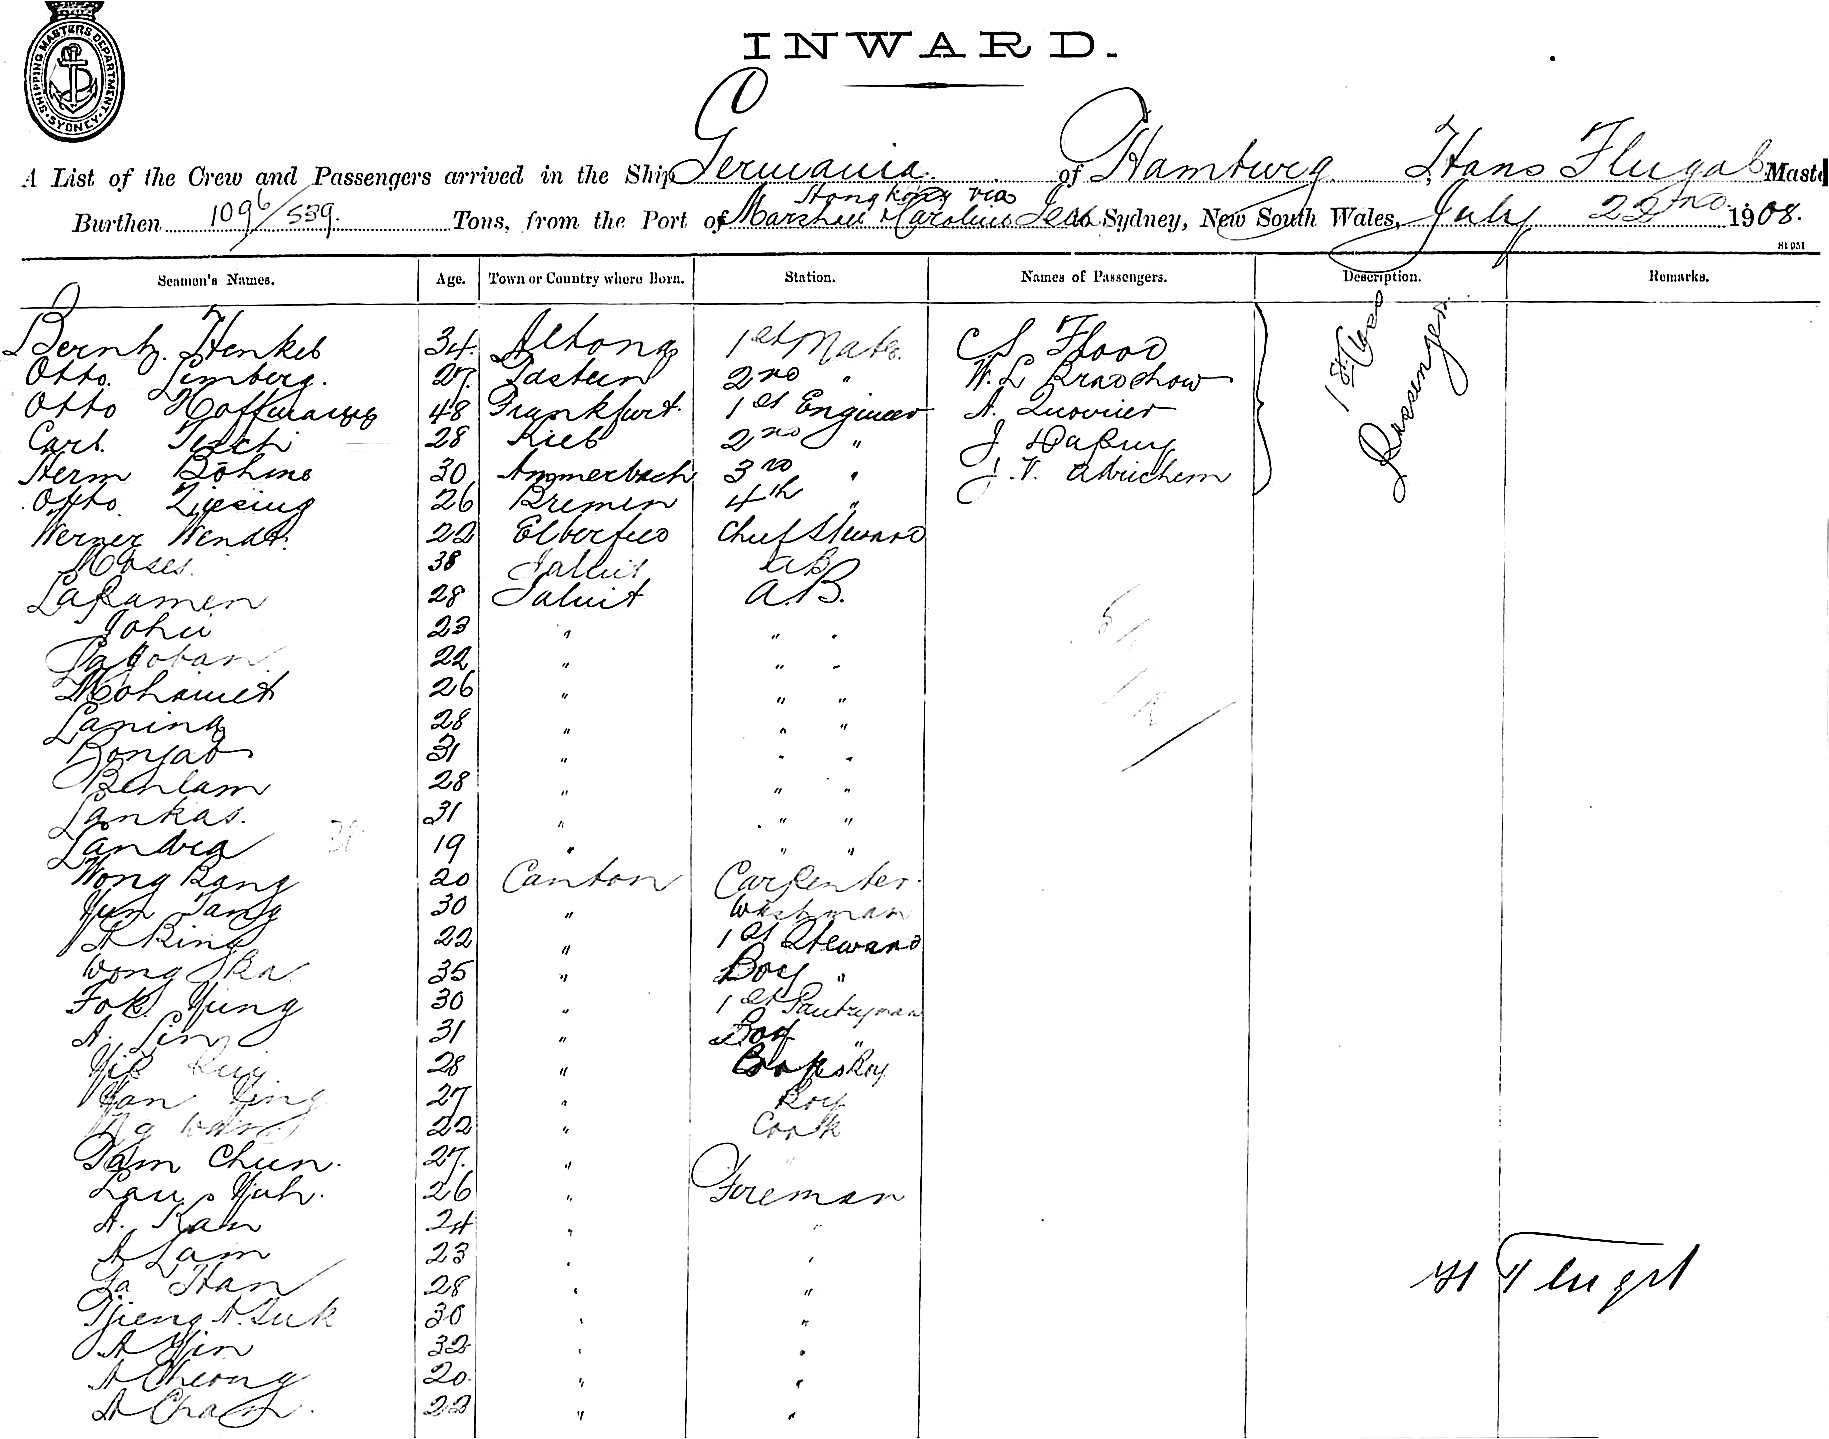 SHIPPING MASTERS DEPARTMENT. SYDNEY.
INWARD.
A List of the Crew and Passengers arrived in the Ship Germania of Hamburg Hans Flugab Maste
Hongkong via
Burthen 1096/539. Tons, from the Port of Marshall Caroline Isds to Sydney, New South Wales, July 22nd 1908.
81 051
Seamen's Names. Age. Town or Country where Born. Station. Names of Passengers. Description. Remarks.
1st Class Passengers
Bernh. Henkel 34 Altona 1st Mate. C S Flood
Otto Limberg. 27 2nd " W. L Bradshow
Otto Hoffmann 48 Frankfurt. 1st Engineer A.
Carl 28 Kiel 2nd " J
Herm Böhme 30 Ammerbach 3rd " J. V. Adrichem
Otto Ziesing 26 Bremen 4th "
Werner Wendt. 22 Elberfeld Chief Steward
Moses. 38 Jaluit AB
Laramen 28 Jaluit A.B.
Johii 23 " " "
22 " " "
Mohamet 26 " " "
Lanina 28 " " "
Bonjab 31 " " "
Benlam 28 " " "
Lankas. 31 " " "
Landra 19 " " "
Wong Bang 20 Canton Carpenter.
Yun Tang 30 " Washman
A King 22 " 1st Steward
Wong Ska 35 " Boy "
Fok Yung 30 " 1st Pantryman
A. Sin 31 " Boy "
Yip 28 " Cooks Boy
Yan Ying 27 " Boy
Ng 22 " Cook
Tam Chun. 27. " "
Lau Yuh. 26 " Foreman
A. Kan 24 " "
A Lam 23 " "
La Han 28 " "
Tjieng A. Suk 30 " "
A Yin 32 " "
A Cheong 20 " "
A Cham. 23 " "